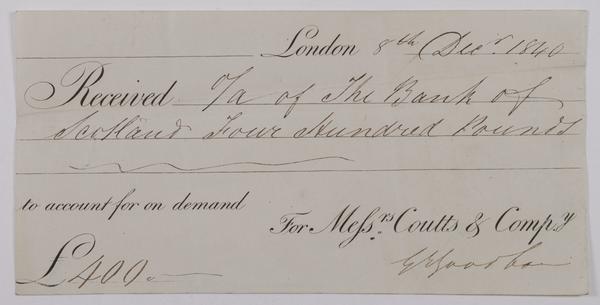 London 8th Decr. 1840
Received o/a of The Bank of
Scotland Four Hundred Pounds
to account for on demand
For Messrs. Coutts & Compy.
£400